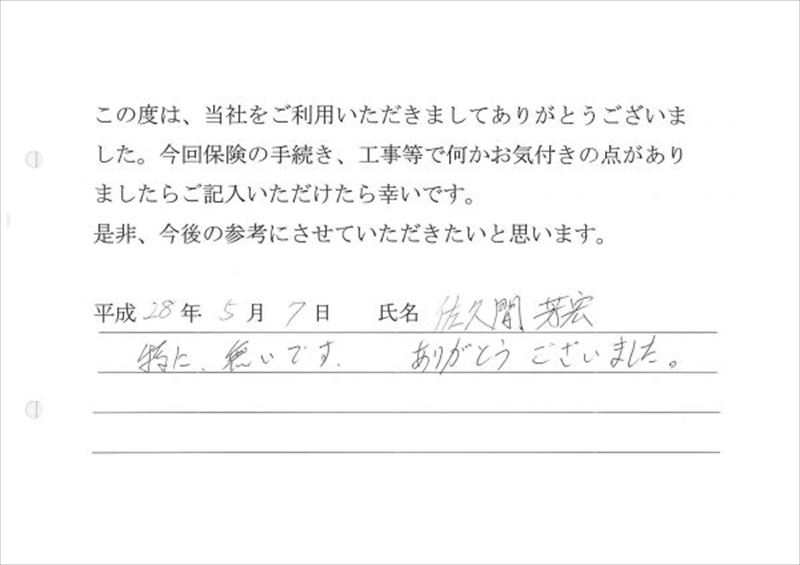 この度は、当社をご利用いただきましてありがとうございま
した。今回保険の手続き、工事等で何かお気付きの点があり
ましたらご記入いただけたら幸いです。
是非、今後の参考にさせていただきたいと思います。
平成 28 年 5 月 7 日 氏名 佐久間 芳宏
特に、無いです. ありがとうございました。